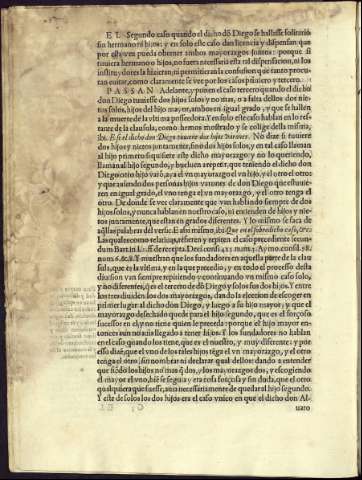 EL Segundo caso quando el dicho dõ Diego se hallasse solitario
sin hermano ni hijos: y en solo este caso dan licencia y dispensan que
por esta vez pueda obtener ambos mayorazgos juntos: porque si
tuuiera hermano o hijos, no fuera necessaria esta tal dispensacion, ni los
instituydores la hizieran, ni permitieran la confusion que tanto procu-
ran euitar, como claramente se vee por los casos primero y tercero.
PASSAN Adelante, y ponen el caso tercero quando el dicho
don Diego tuuiesse dos hijos solos y no mas, o a falta dellos dos nie-
tos hijos, y dos del hijo mayor, ambos en igual grado, y que se hallen
a la muerte de la vltima posseedora. Y en solo este caso hablan en los res-
tante de la clausula, como hemos mostrado y se colige della misma,
ibi: E si el dicho don Diego tuuiere dos hijos Varones. No dize si tuuiere
dos hijos y nietos juntamente, sino dos hijos solos, y en tal caso llaman
al hijo primero si quisiere este dicho mayorazgo: y no lo queriendo,
llaman al hijo segundo, y bueluen a repetir, que teniendo el dicho don
Diego otro hijo varõ, aya el vn mayorazgo el vn hijo, y el otro el otro:
y que auiendo dos personas hijos varones de don Diego que estuuie-
ren en igual grado, el vno tenga el vn mayorazgo, y el otro tenga el
otro. De donde se vee claramente que van hablando siempre de dos
hijos solos, y nunca hablan en otro caso, ni entienden de hijos y nie-
tos juntamente, que estan en grados diferentes. Y lo mismo se saca de
aq̃llas palabras del versic. E aso mismo, ibi: Que en el sobredicho caso, &c.
Las quales como relatiuas, refieren y repiten el caso precedente secun-
dum Bart. in L. ff. de recepta. Deci. cons. num. Aymo. cons.
num. 6. & 8. Y muestran que los fundadores en aquella parte de la clau-
sula, que es la vltima, y en la que procedio, y en todo el processo desta
dicisiõ van siempre repitiendo y continuando vn mismo caso solo,
y no diferentes, q̃ es el tercero de dõ Diego y solos sus dos hijos. Y entre
los tres diuididos los dos mayorazgos, dando la eleccion de escoger en
primer lugar al dicho don Diego, y luego a su hijo mayor: y que el
mayorazgo desechado quede para el hijo segundo, que es el forçoso
sucessor en el, y no tiene quien le preceda: porque el hijo mayor en-
tonces aun no auia llegado a tener hijos. Y los fundadores no hablan
en el caso quando los tiene, que es el nuestro, y muy diferente: y por
esso dize, que el vno de los tales hijos tẽga el vn mayorazgo, y el otro
tenga el otro, sin nombrar ni declarar qual dellos: dando a entender
que siẽdo los hijos no mas q̃ dos, y los mayorazgos dos, y escogiendo
el mayor el vno, biẽ se seguia y era cosa forçosa y sin duda, que el otro
qualquiera que fuesse, auia necessariamente de quedar al hijo segundo.
Y este de solos los dos hijos era el caso vnico en que el dicho don Al-
uaro